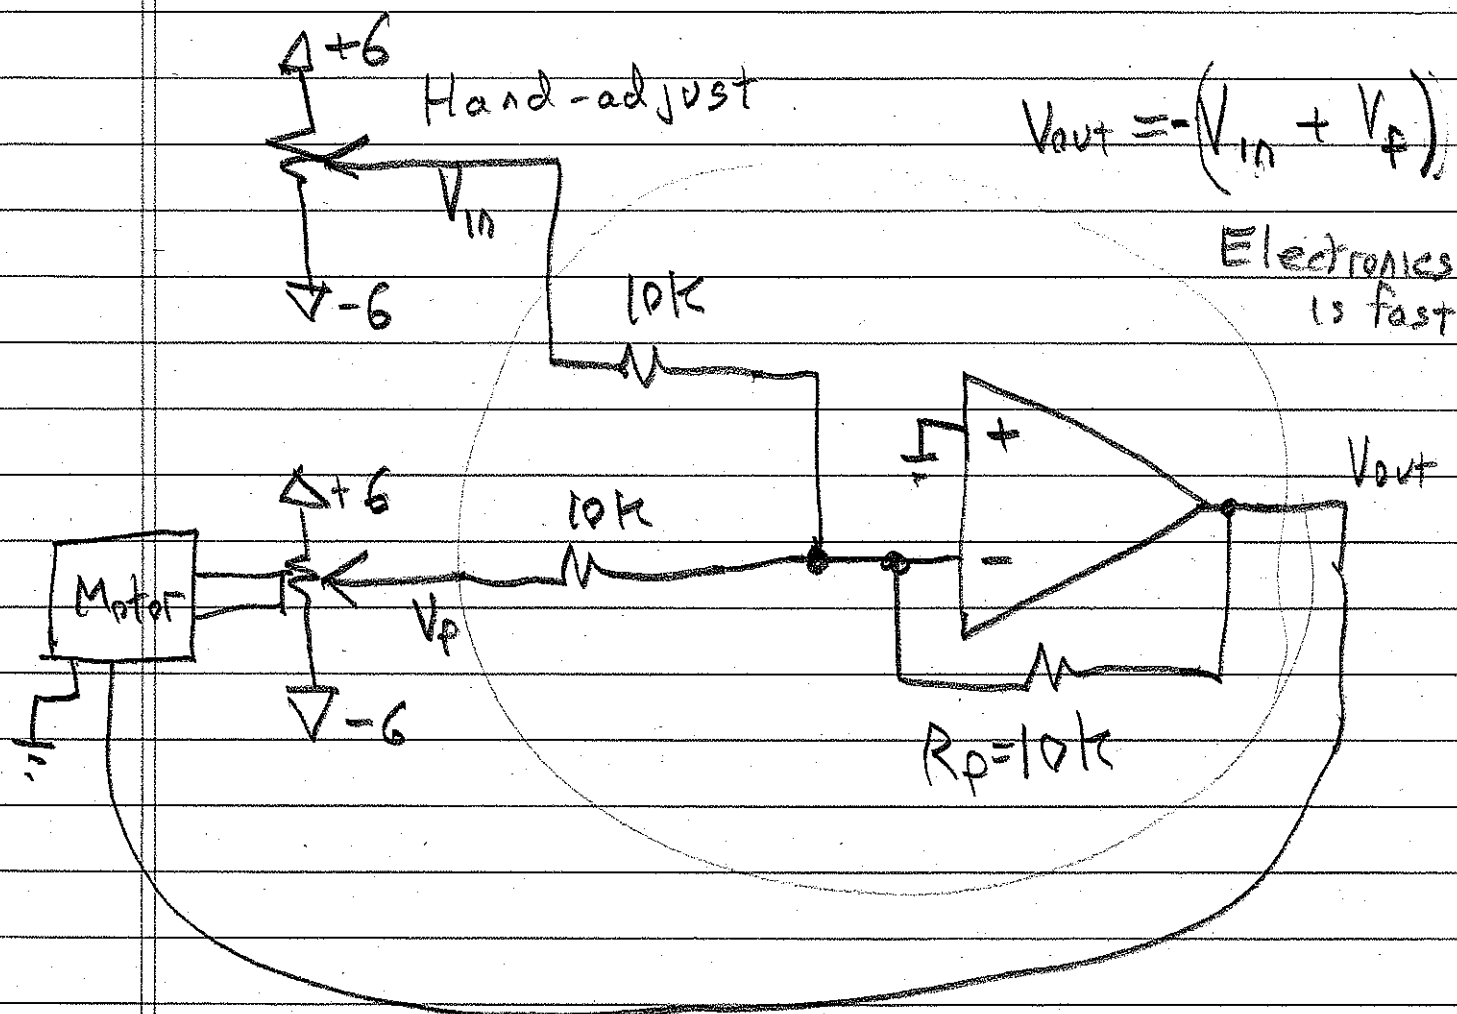 +6
Hand-adjust
Vout = -(Vin + Vp)
Vin
Electronics
is fast
-6
10K
+
Vout
+6
10K
-
Motor
Vp
-6
Rp=10k